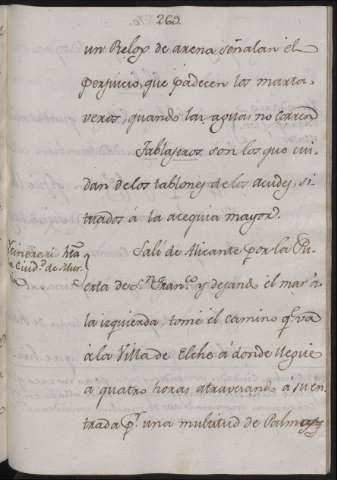 269.
un Relox de arena señalan el
perjuicio, que padecen los marta-
veros, quando las aguas no corren
Tablajeros son los que cui-
dan de los tablones de los acudes, si-
tuados á la acequia mayor.
Salí de Alicante por la Pu-
erta de Sn. Franco. y dejando el mar á
la izquierda, tomé el camino qe. va
á la Villa de Elche á donde llegue
a quatro horas atravesando a su en-
trada pr. una multitud de Palmas
Ytinerari. hta
a Ciudd. de Mur-